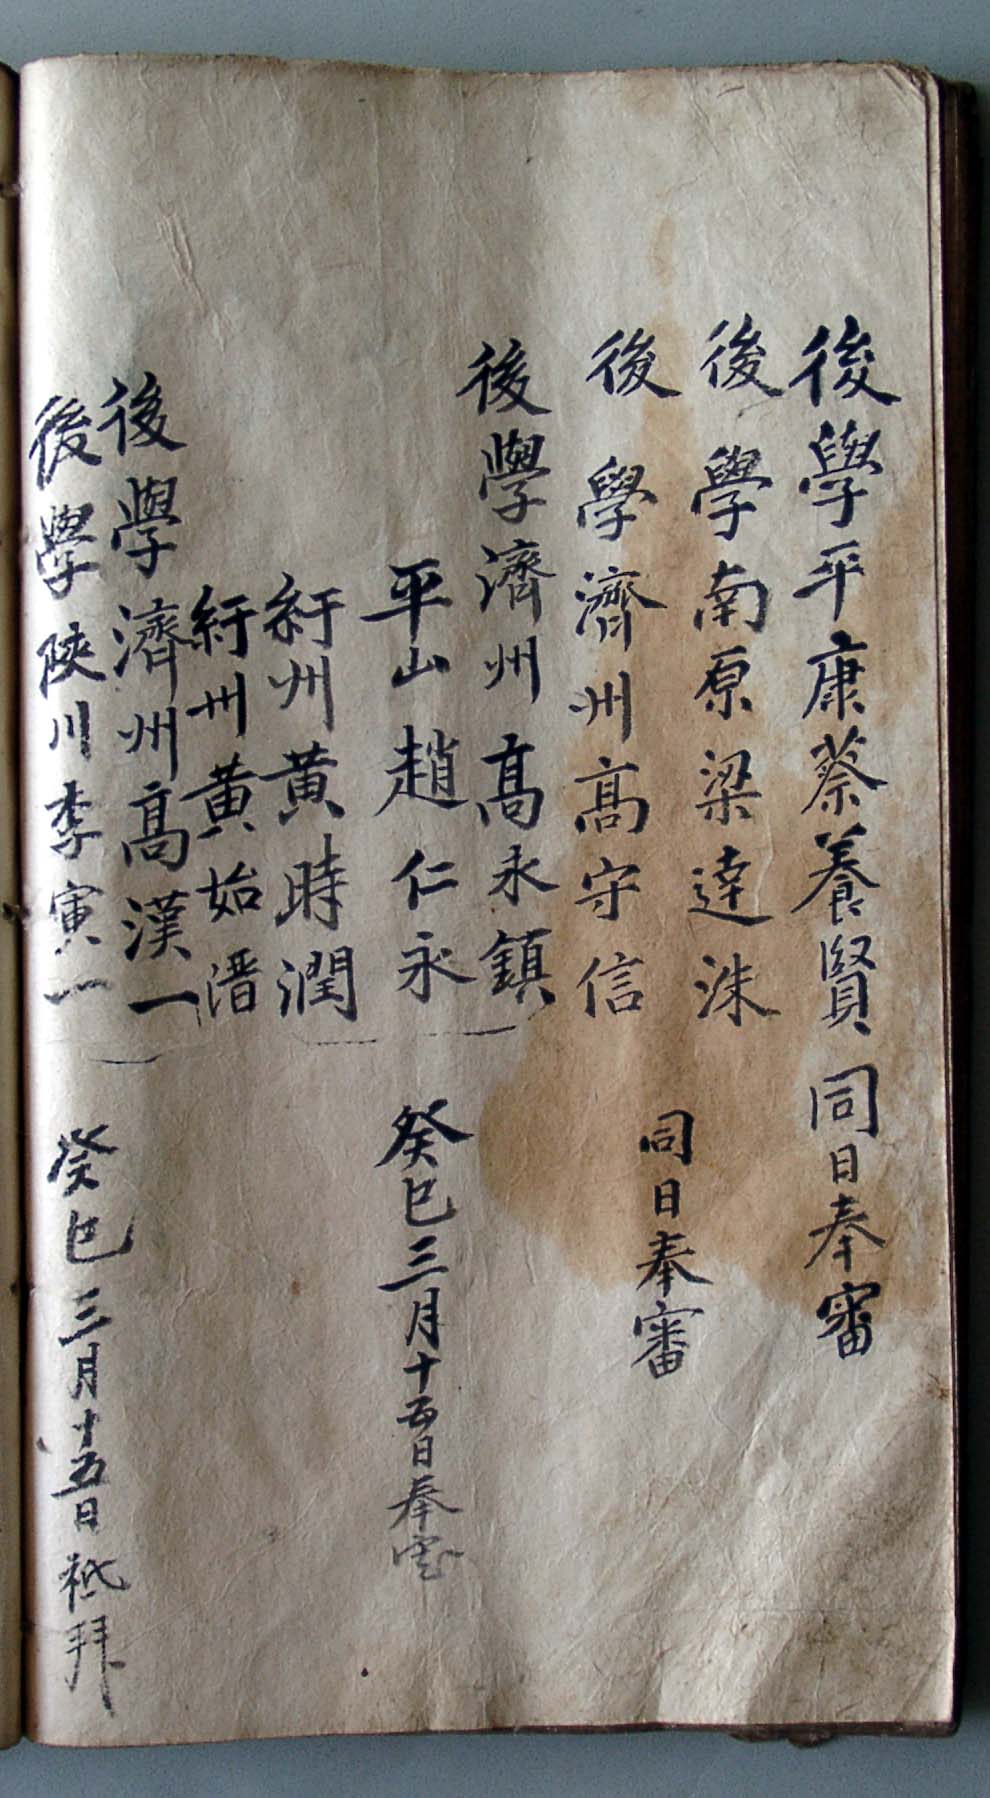 後學平康蔡養賢 同日奉審
後學南原梁達洙
後學濟州高守信
同日奉審
後學濟州高永鎮
平山趙仁永
紆州黃時潤
癸巳三月十五日奉審
紆州黃始溍
後學濟州高漢一
後學陜川李寅一
癸巳三月十五日祗拜